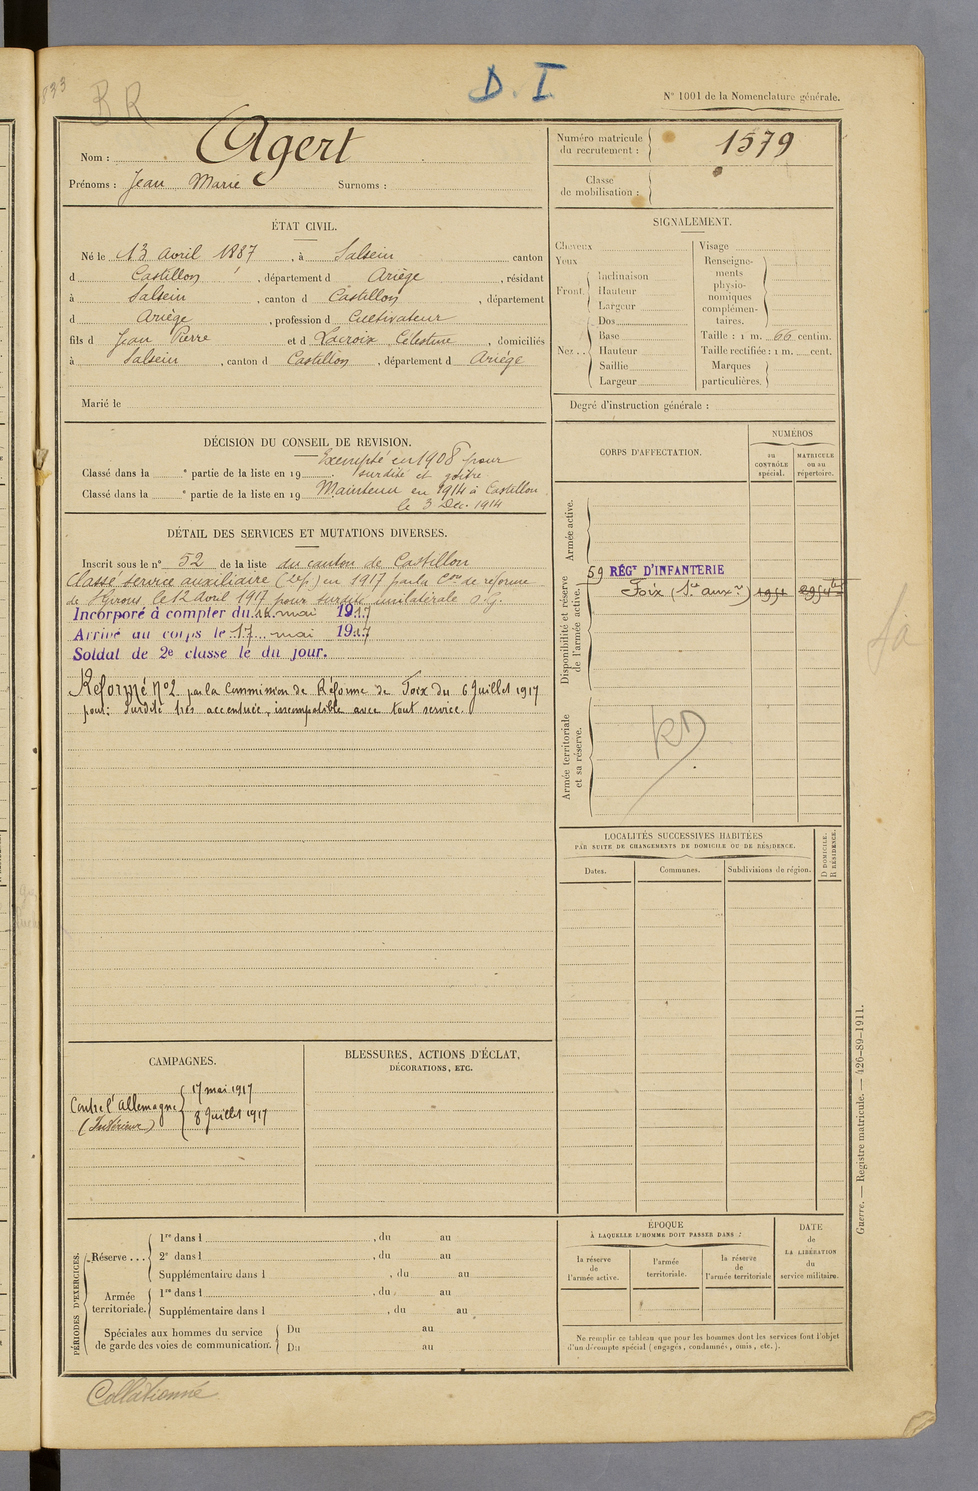 833
BR
D. I
N° 1001 de la Nomenclature générale.
Nom : Agert
Prénoms : Jean Marie Surnoms :
Numéro matricule du recrutement : 1579
Classe de mobilisation :
ÉTAT CIVIL.
Né le 13 avril 1887, à Salsein canton
d Castillon, département d Ariège, résidant
à Salsein, canton d Castillon, département
d Ariège, profession d Cultivateur
fils d Jean Pierre et d Lacroix Célestine, domiciliés
à Salsein, canton d Castillon, département d Ariège
Marié le
SIGNALEMENT.
Cheveux
Yeux
Front.
Inclinaison
Hauteur
Largeur
Nez..
Dos
Base
Hauteur
Saillie
Largeur
Visage
Renseignements physionomiques complémentaires.
Taille : 1 m. 66 centim.
Taille rectifiée : 1 m. cent.
Marques particulières.
Degré d'instruction générale :
DÉCISION DU CONSEIL DE REVISION.
Exempté en 1908 pour
Classé dans la e partie de la liste en 19 surdité et goître
Classé dans la e partie de la liste en 19 Maintenu en 1914 à Castillon
le 3 Déc. 1914
DÉTAIL DES SERVICES ET MUTATIONS DIVERSES.
Inscrit sous le n° 52 de la liste du canton de Castillon
Classé service auxiliaire en 1917 par la Con de réforme
de St Girons, le 12 avril 1917 pour surdité unilatérale
Incorporé à compter du mai 1917
Arrivé au corps le 17 mai 1917
Soldat de 2e classe le du jour.
Réformé N°2 par la Commission de Réforme de Foix du 6 Juillet 1917
pour: surdité très accentuée, incompatible avec tout service.
CORPS D'AFFECTATION.
NUMÉROS
au CONTRÔLE spécial.
MATRICULE ou au répertoire.
Armée active.
Disponibilité et réserve de l'armée active.
59 RÉGT D'INFANTERIE
Foix (Sce auxre)
Armée territoriale et sa réserve.
RD
LOCALITÉS SUCCESSIVES HABITÉES
PAR SUITE DE CHANGEMENTS DE DOMICILE OU DE RÉSIDENCE.
Dates.
Communes.
Subdivisions de région.
D DOMICILE.
R RÉSIDENCE.
CAMPAGNES.
Contre l'Allemagne
(Intérieur)
17 mai 1917
8 Juillet 1917
BLESSURES, ACTIONS D'ÉCLAT,
DÉCORATIONS, ETC.
PÉRIODES D'EXERCICES.
Réserve ...
1re dans l , du au
2e dans l , du au
Supplémentaire dans l , du au
Armée territoriale.
1re dans l , du au
Supplémentaire dans l , du au
Spéciales aux hommes du service
de garde des voies de communication.
Du au
Du au
ÉPOQUE
À LAQUELLE L'HOMME DOIT PASSER DANS :
la réserve de l'armée active.
l'armée territoriale.
la réserve de l'armée territoriale
DATE de LA LIBÉRATION du service militaire.
Ne remplir ce tableau que pour les hommes dont les services font l'objet
d'un décompte spécial (engagés, condamnés, omis, etc.).
Guerre. — Registre matricule. — 426-89-1911.
Collationné